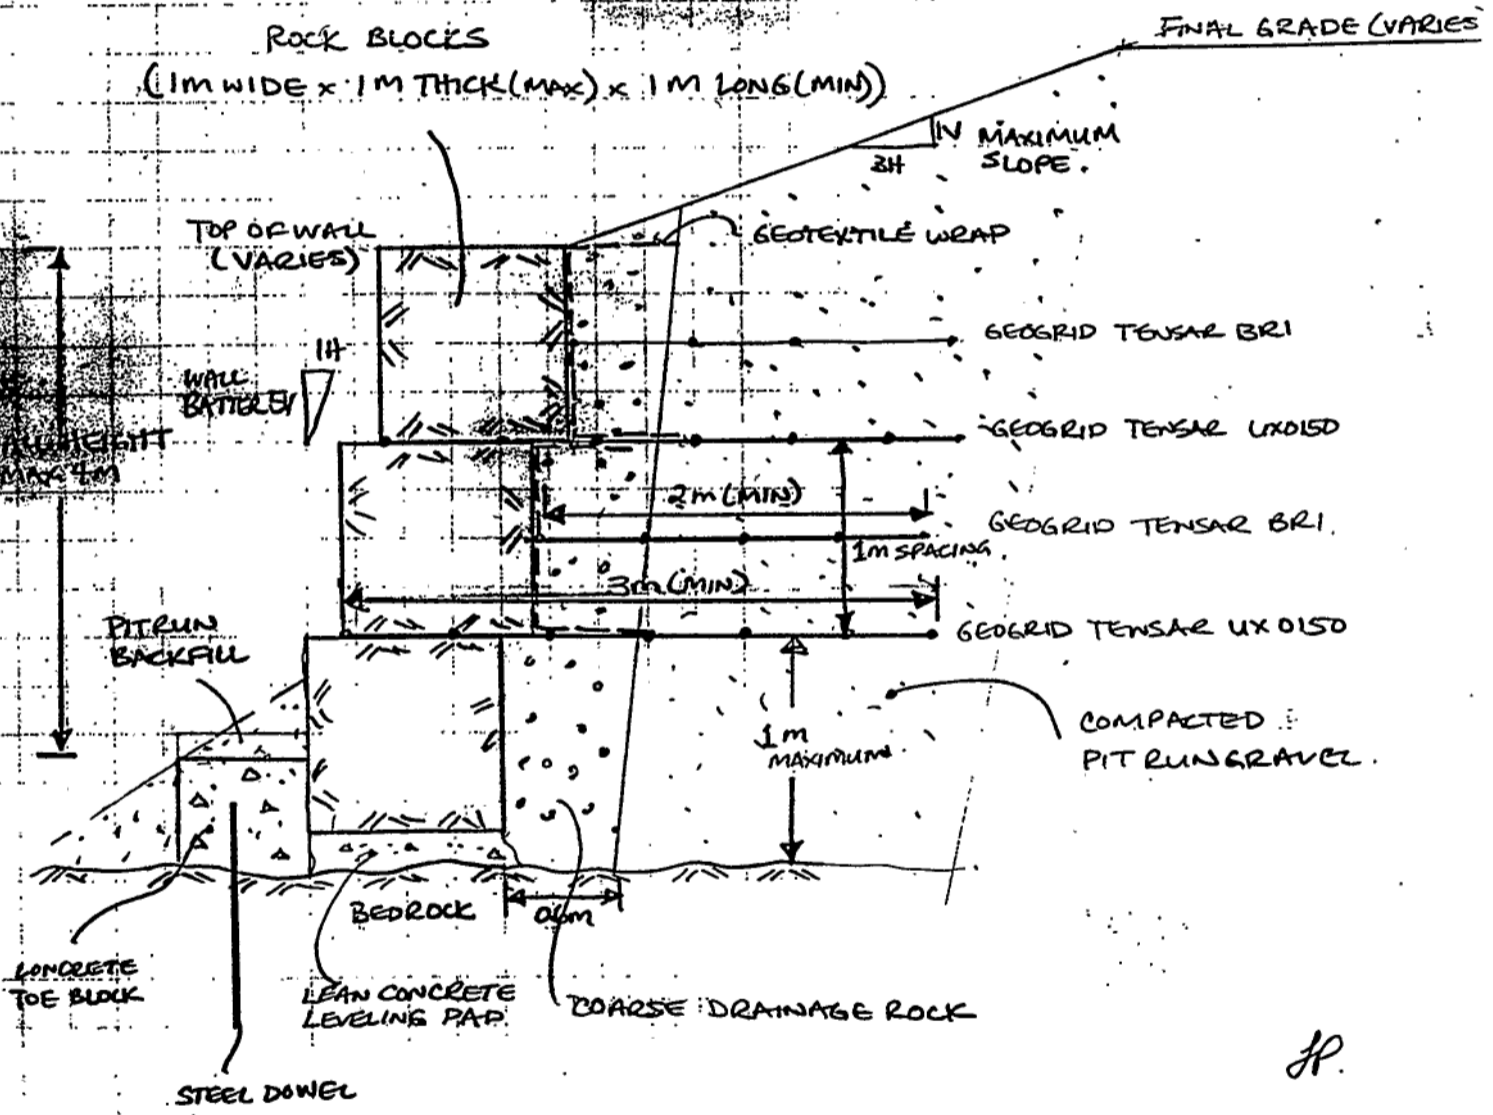 ROCK BLOCKS
(1M WIDE x 1M THICK (MAX) x 1M LONG (MIN))
FINAL GRADE (VARIES
1V MAXIMUM
3H SLOPE.
TOP OF WALL
(VARIES)
GEOTEXTILE WRAP
GEOGRID TENSAR BR1
1H
WALL
BATTER
GEOGRID TENSAR UX0150
HEIGHT
MAX 4M
2m (MIN)
GEOGRID TENSAR BR1.
1m SPACING.
3m (MIN)
GEOGRID TENSAR UX0150
PITRUN
BACKFILL
1m
MAXIMUM.
COMPACTED
PIT RUN GRAVEL.
BEDROCK
0.6m
CONCRETE
TOE BLOCK
LEAN CONCRETE
LEVELING PAD.
COARSE DRAINAGE ROCK
STEEL DOWEL